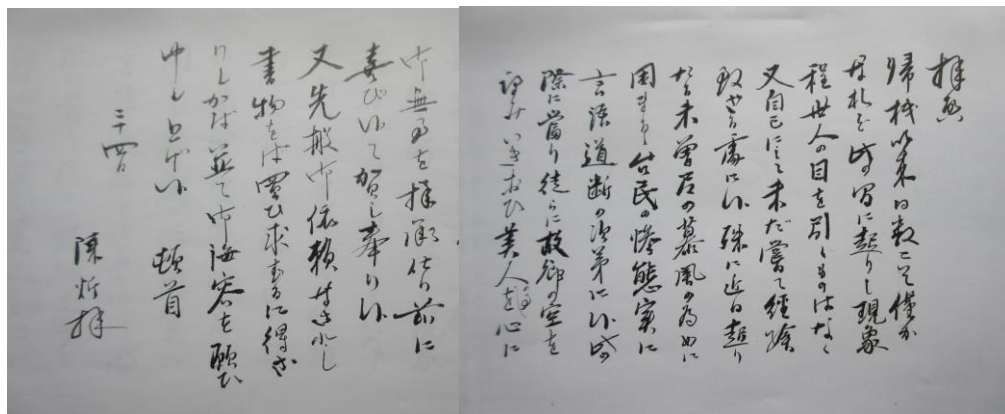 拝啓
帰械以来日数こそ僅か
なれど此の間に起りし現象
程世人の目を引くものはなく
又自己にして未だ嘗て経験
致さざる処に候 殊に近日起り
たる未曾有の暴風の為めに
困まる台民の惨態実に
言語道断の次第に候 此の
際に当り徒らに故郷の空を
望み 美人を心に
御無事を拝承仕り誠に
喜びいて賀し奉り候
又先般中依頼せられし
書物をば買ひ求むるに得ざ
りしかば 並て御海容を願ひ
申し上げ候 頓首
三十四日
陳炘拝